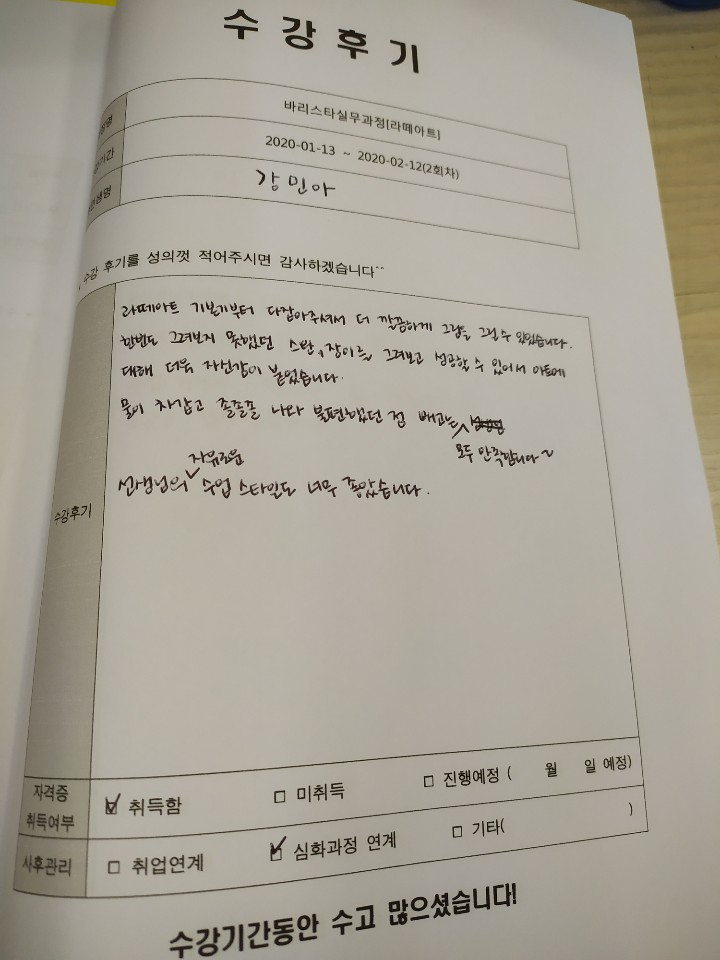 수 강 후 기
바리스타실무과정[라떼아트]
기간 2020-01-13 ~ 2020-02-12(2회차)
강민아
수강 후기를 성의껏 적어주시면 감사하겠습니다^^
수강후기
라떼아트 기본기부터 다잡아주셔서 더 깔끔하게 그림을 그릴 수 있었습니다.
한번도 그려보지 못했던 스완, 장미를 그려보고 성공할 수 있어서 아트에
대해 더욱 자신감이 붙었습니다.
물이 차갑고 졸졸졸 나와 불편했던 점 빼고는
모두 만족합니다~
선생님의 자유로운 수업 스타일도 너무 좋았습니다.
자격증 취득여부 ☑ 취득함 □ 미취득 □ 진행예정 ( 월 일 예정)
사후관리 □ 취업연계 ☑ 심화과정 연계 □ 기타( )
수강기간동안 수고 많으셨습니다!